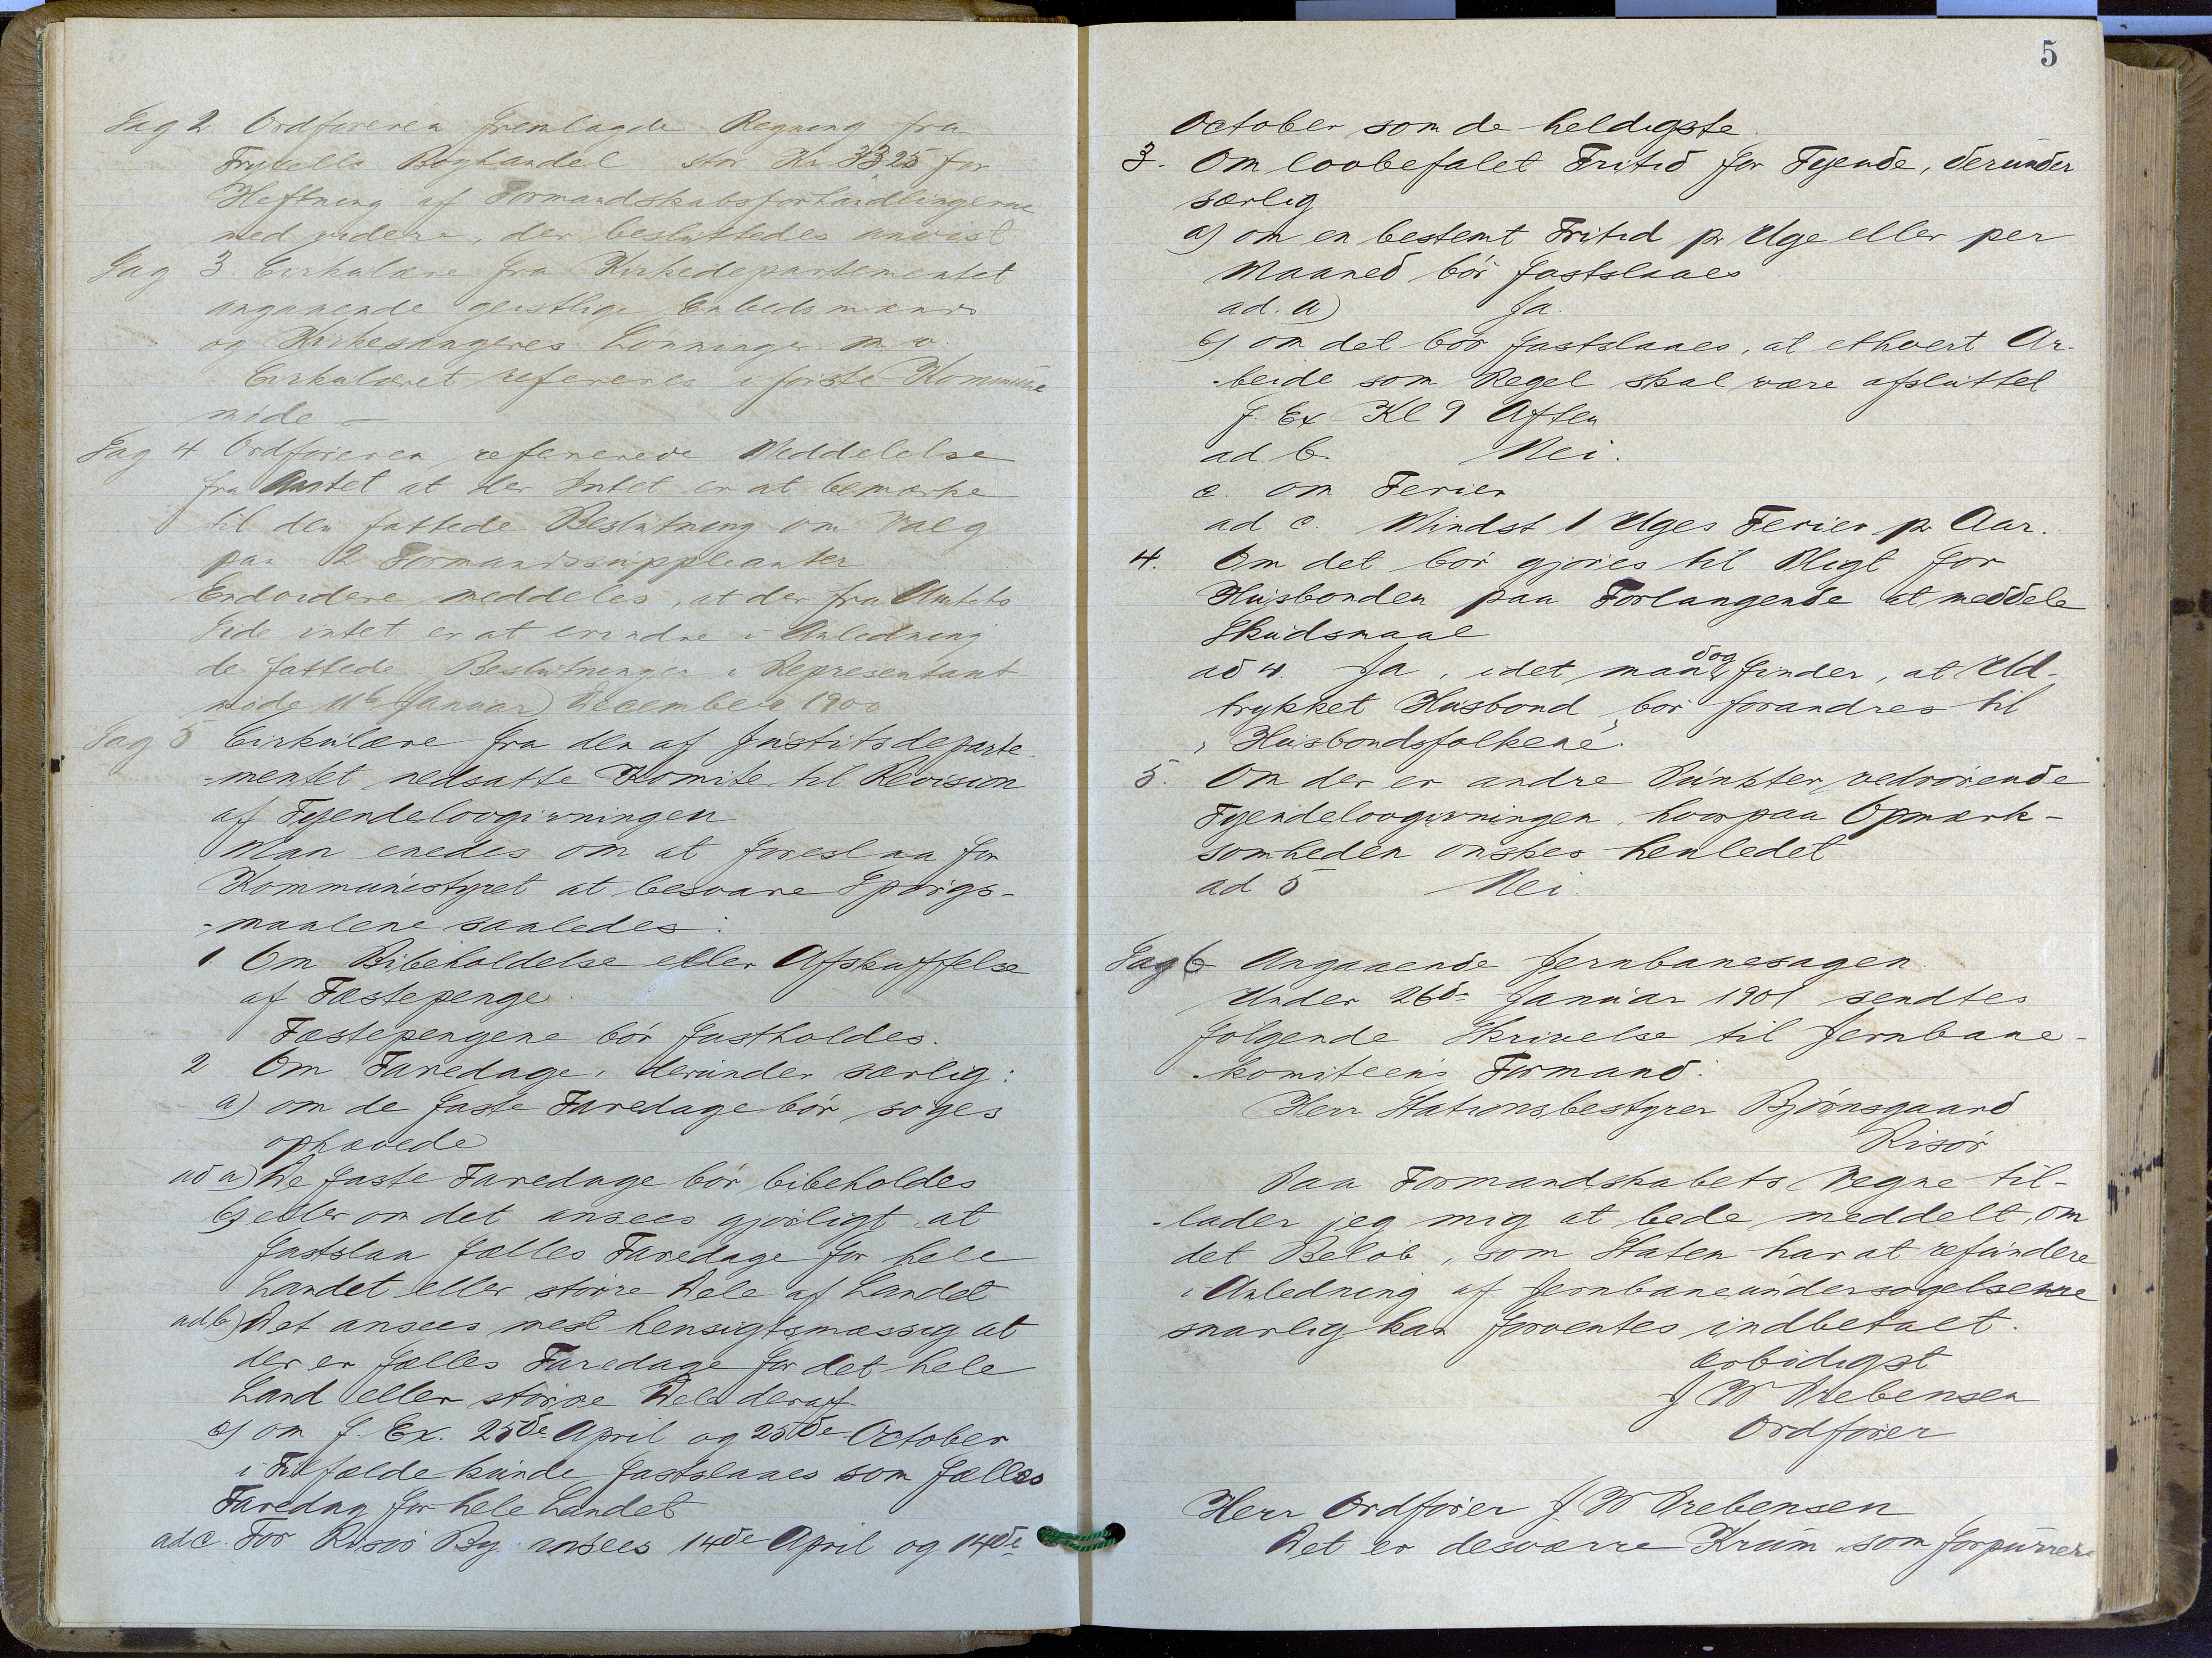 Sag 2 Ordföreren fremlagde Regning fra
Frysells Boghandel stor Kr 33,25 for
Heftning af Formandskabsforhandlingerne
med videre, der besluttedes anvist
Sag 3. Cirkulære fra Kirkedepartementet
angaaende geistlige Embedsmænds
og Kirkesangeres Lønninger m. v.
Cirkulæret refereres i første Kommune
møde –
Sag 4 Ordføreren refererede Meddelelse
fra Amtet at der Intet er at bemærke
til den fattede Beslutning om Valg
paa 2 Formandssuppleanter
Endvidere meddeles, at der fra Amtets
Side intet er at erindre i Anledning
de fattede Beslutninger i Representant
møde 11te Januar) December 1900
Sag 5 Cirkulære fra den af Justitsdeparte-
-mentet nedsatte Komite til Revision
af Tyendelovgivningen
Man enedes om at foreslaa for
Kommunestyret at besvare Spörgs-
-maalene saaledes:
1. Om Bibeholdelse eller Afskaffelse
af Fæstepenge.
Fæstepengene bör fastholdes.
2 Om Faredage, derunder særlig:
a) om de faste Faredage bör söges
ophævede
ad a) De faste Faredage bör bibeholdes
b) eller om det ansees gjörligt at
fastslaa fælles Faredage for hele
Landet eller större Dele af Landet
ad b) Det ansees mest hensigtsmæssig at
der er fælles Faredage for det hele
Land eller större Dele deraf.
c) om f. Ex. 25de April og 25de October
i Tilfælde kunde fastslaaes som fælles
Faredag for hele Landet
ad c. For Risör By ansees 14de April og 14de
5
October som de heldigste.
3. Om lovbefalet Fritid for Tyende, derunder
særlig
a) om en bestemt Fritid pr Uge eller per
Maaned bör fastslaaes
ad. a) Ja.
b) om det bör fastslaaes, at ethvert Ar-
-beide som Regel skal være afsluttet
f. Ex Kl 9 Aften
ad b. Nei.
c. om Ferier
ad c. Mindst 1 Uges Ferier pr Aar.
4. Om det bör gjöres til Pligt for
Husbonden paa Forlangende at meddele
Skudsmaal
ad 4. Ja, idet man dog finder, at Ud-
trykket Husbond bör forandres til
„Husbondsfolkene“.
5. Om der er andre Punkter vedrörende
Tyendelovgivningen, hvorpaa Opmærk-
somheden önskes henledet
ad 5 Nei.
Sag 6 Angaaende Jernbanesagen.
Under 26de Januar 1901 sendtes
fölgende Skrivelse til Jernbane-
-komiteens Formand.
Herr Stationsbestyrer Björnsgaard
Risör
Paa Formandskabets Vegne til-
-lader jeg mig at bede meddelt, om
det Belöb, som Staten har at refundere
i Anledning af Jernbaneundersögelserne
snarlig kan forventes indbetalt.
Ærbödigst
J W Prebensen
Ordförer
Herr Ordförer J. W Prebensen
Det er desværre Krum som forpurrer